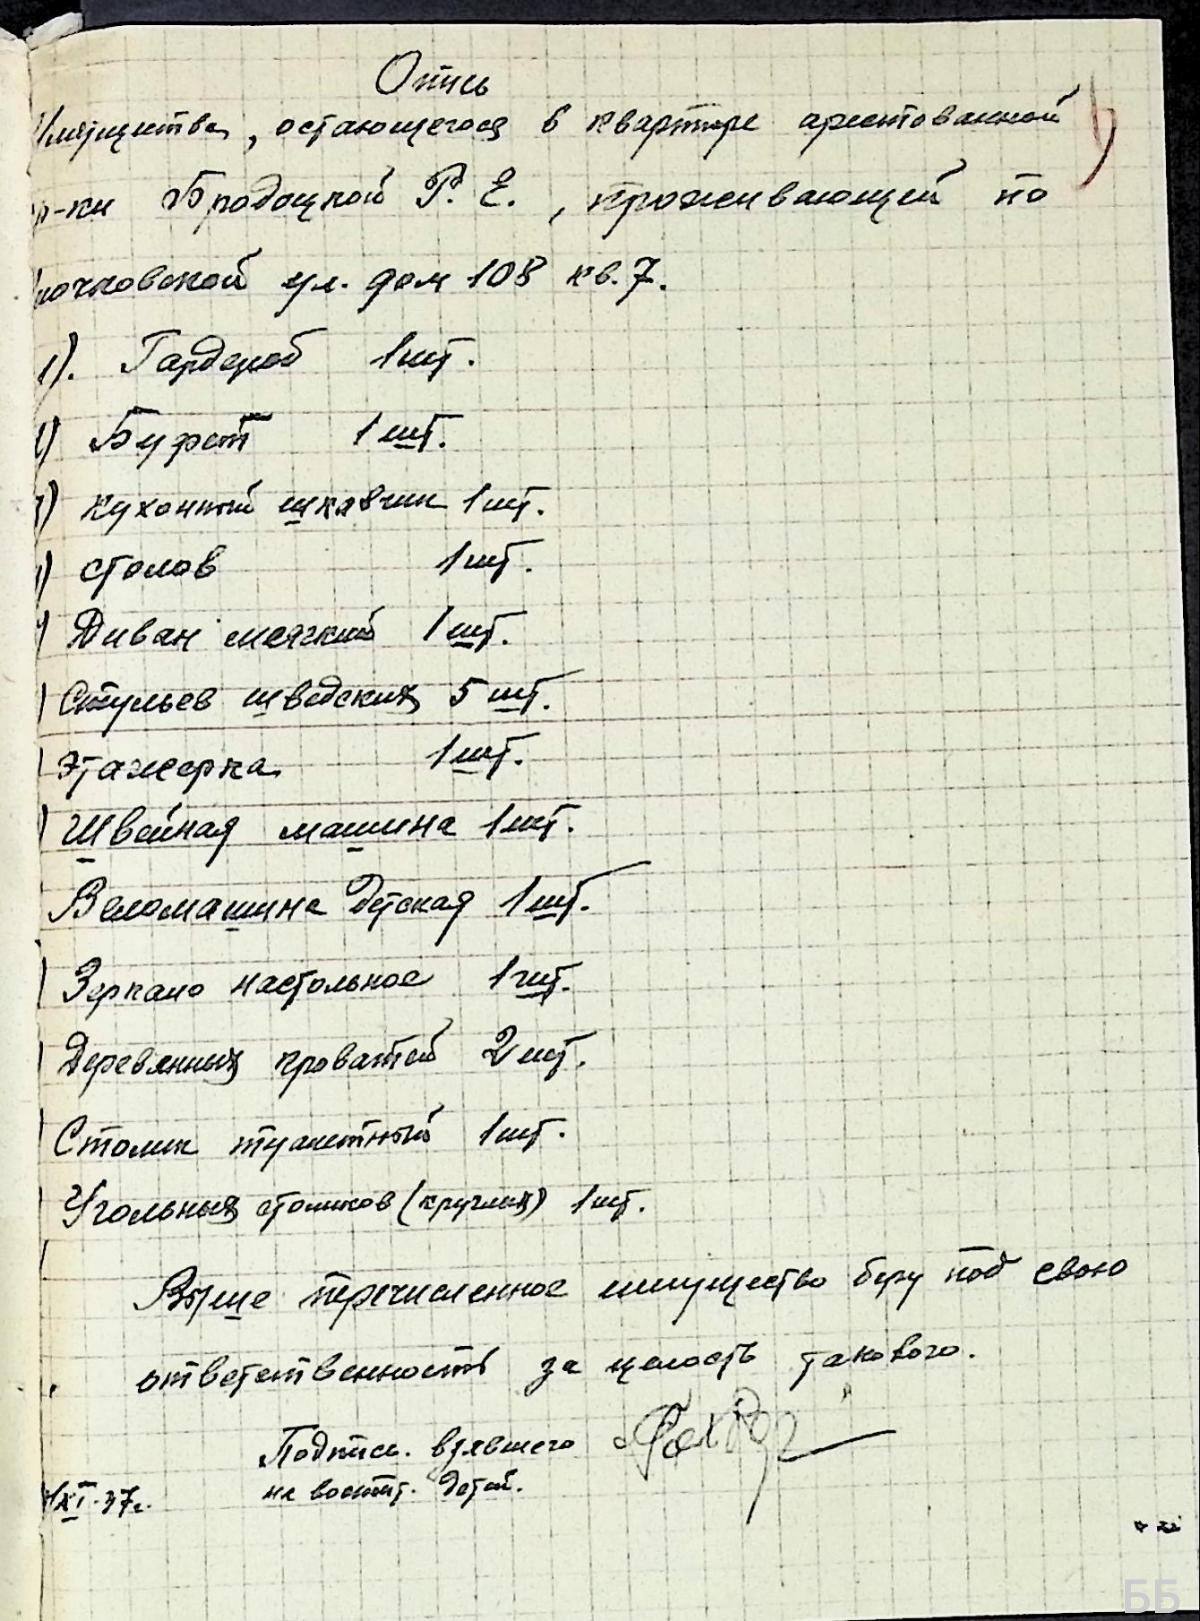 Опись
Имущества, остающегося в квартире арестованной
р-ки Бродоцкой Р. Е., проживающей по
Клочковской ул. дом 108 кв. 7.
1). Гардероб 1 шт.
2) Буфет 1 шт.
3) кухонный шкавчик 1 шт.
) столов 1 шт.
) Диван мягкий 1 шт.
) Стульев шведских 5 шт.
) Этажерка 1 шт.
) Швейная машина 1 шт.
Веломашина детская 1 шт.
) Зеркало настольное 1 шт.
) Деревянных кроватей 2 шт.
) Столик туалетный 1 шт.
) Угольных столиков (круглых) 1 шт.
Выше перечисленное имущество беру под свою
ответственность за целость такового.
Подпись взявшего
на воспит. детей.
XI-37г.
ББ